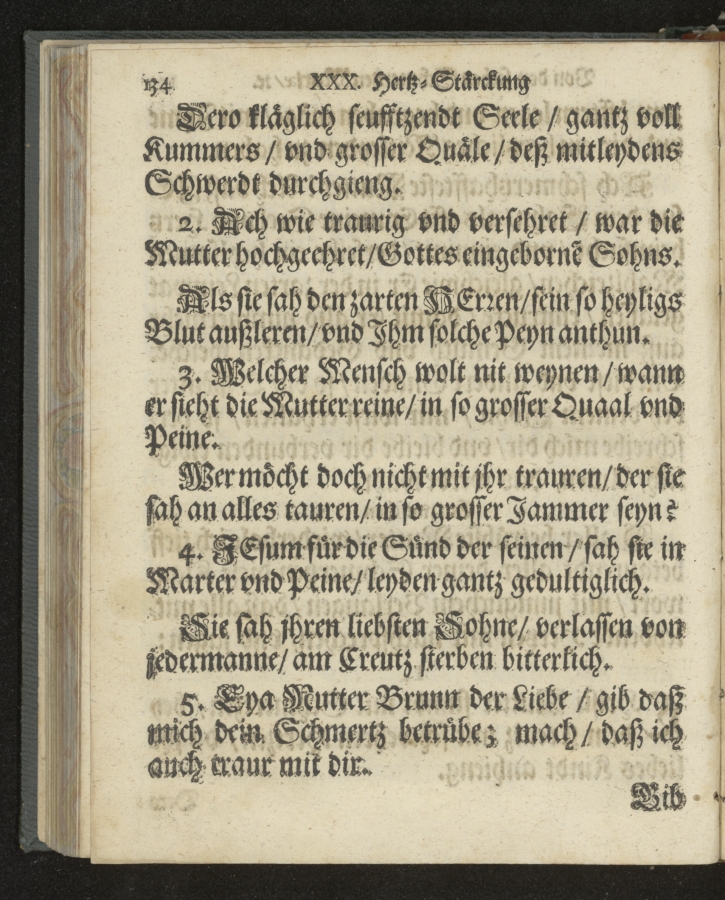 134 XXX. Hertz-Stärckung
Dero kläglich seufftzendt Seele / gantz voll
Kummers / vnd grosser Quäle / deß mitleydens
Schwerdt durchgieng.
2. Ach wie traurig vnd versehret / war die
Mutter hochgeehret/Gottes eingebornẽ Sohns.
Als sie sah den zarten HErren/sein so heyligs
Blut außleren/vnd Ihm solche Peyn anthun.
3. Welcher Mensch wolt nit weynen / wann
er sieht die Mutter reine/ in so grosser Quaal vnd
Peine.
Wer möcht doch nicht mit jhr trauren/ der sie
sah an alles tauren/ in so grosser Jammer seyn?
4. JEsum für die Sünd der seinen / sah sie in
Marter vnd Peine/ leyden gantz gedultiglich.
Sie sah jhren liebsten Sohne/ verlassen von
jedermanne/ am Creutz sterben bitterlich.
5. Eya Mutter Brunn der Liebe / gib daß
mich dein Schmertz betrübe; mach / daß ich
auch traur mit dir.
Gib